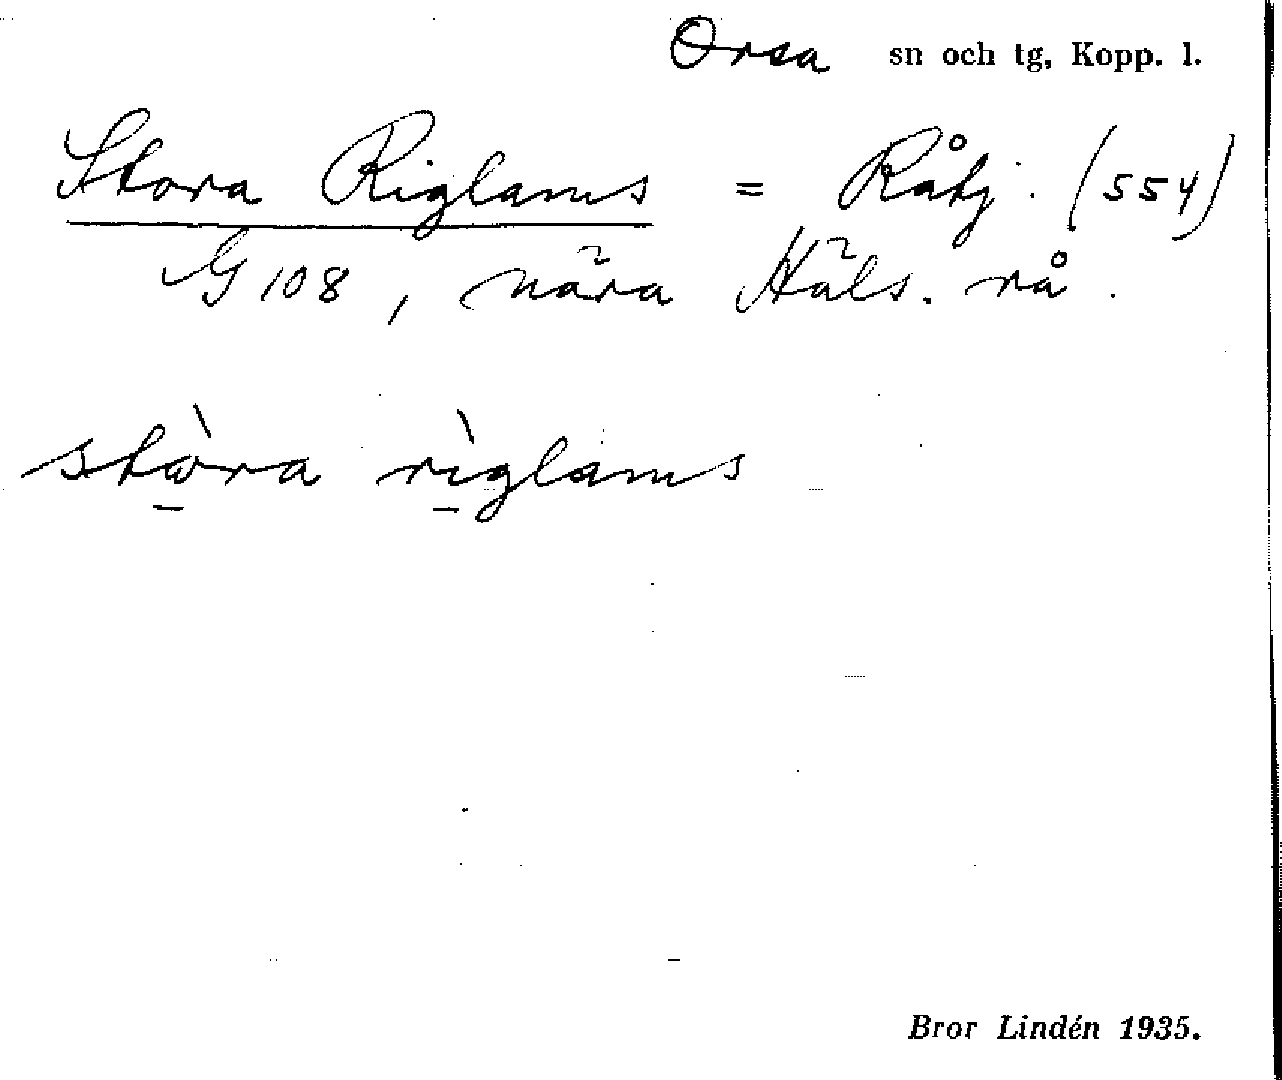 Orsa sn och tg, Kopp. l.
Stora Riglams = Råtj. (554)
G 108, nära Häls. rå.
stòra rìglams
Bror Lindén 1935.